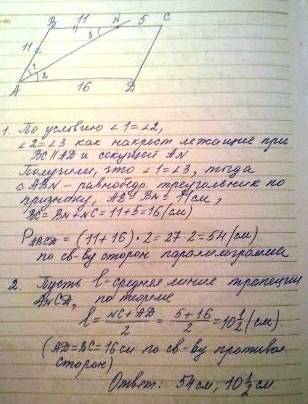 B 11 N 5 C
11 3
1
2
A 16 D
1. По условию ∠1=∠2,
∠2=∠3 как накрест лежащие при
BC∥AD и секущей AN
Получим, что ∠1=∠3, тогда
△ABN – равнобедр. треугольник по
признаку, AB=BN=11см,
BC=BN+NC=11+5=16(см)
PABCD=(11+16)·2=27·2=54(см)
по св-ву сторон параллелограмма
2. Пусть l-средняя линия трапеции
ANCD, по теореме
l=NC+AD/2=5+16/2=10½(см).
(AD=BC=16см по св-ву противоп.
сторон)
Ответ: 54см, 10½см